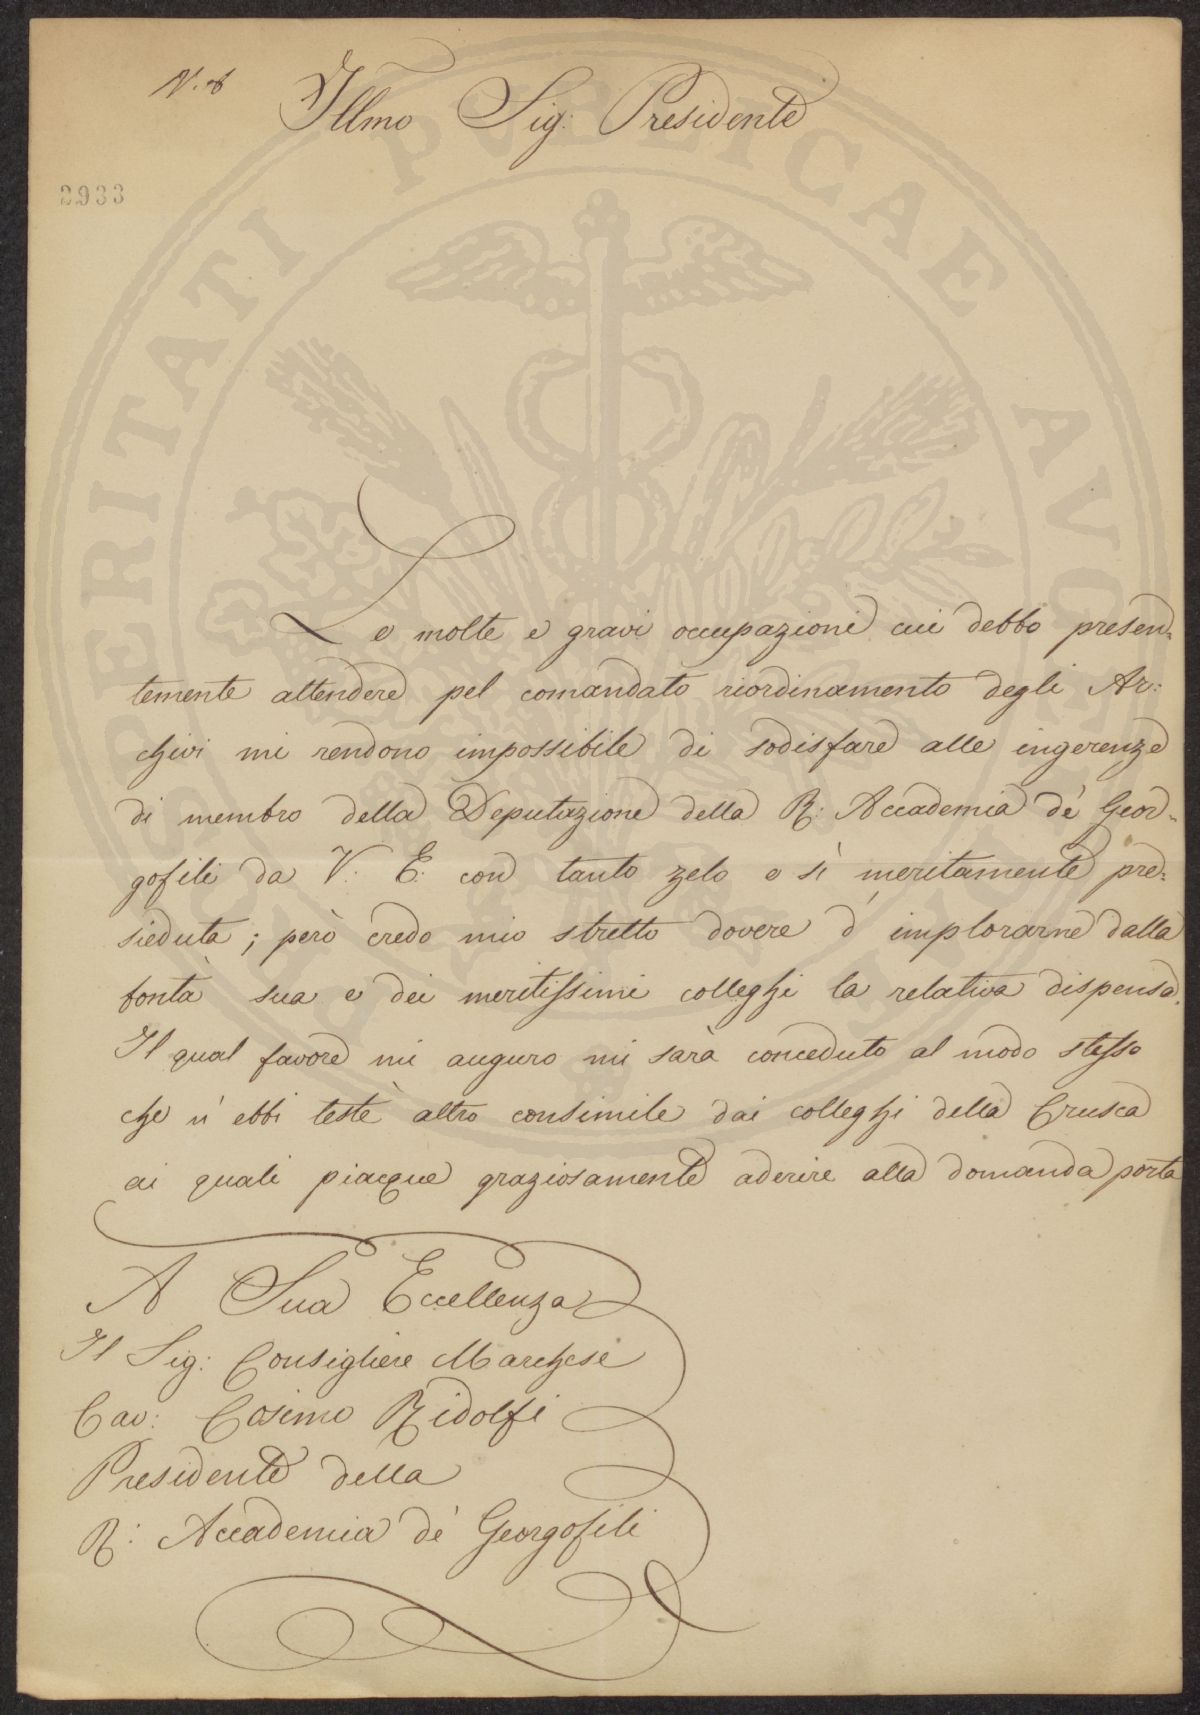 N. 8
Illmo Sig: Presidente
2933
Le molte e gravi occupazioni cui debbo presen=
temente attendere pel comandato riordinamento degli Ar:
chivi mi rendono impossibile di sodisfare alle ingerenze
di membro della Deputazione della R: Accademia de' Geor=
gofili da V: E: con tanto zelo e sì meritamente pre=
sieduta; però credo mio stretto dovere d' implorarne dalla
bontà sua e dei meritissimi colleghi la relativa dispensa.
Il qual favore mi auguro mi sarà conceduto al modo stesso
che n' ebbi testè altro consimile dai colleghi della Crusca
ai quali piacque graziosamente aderire alla domanda porta
A Sua Eccellenza
Il Sig: Consigliere Marchese
Cav: Cosimo Ridolfi
Presidente della
R: Accademia de' Georgofili
PROSPERITATI PVBLICAE AVGENDAE